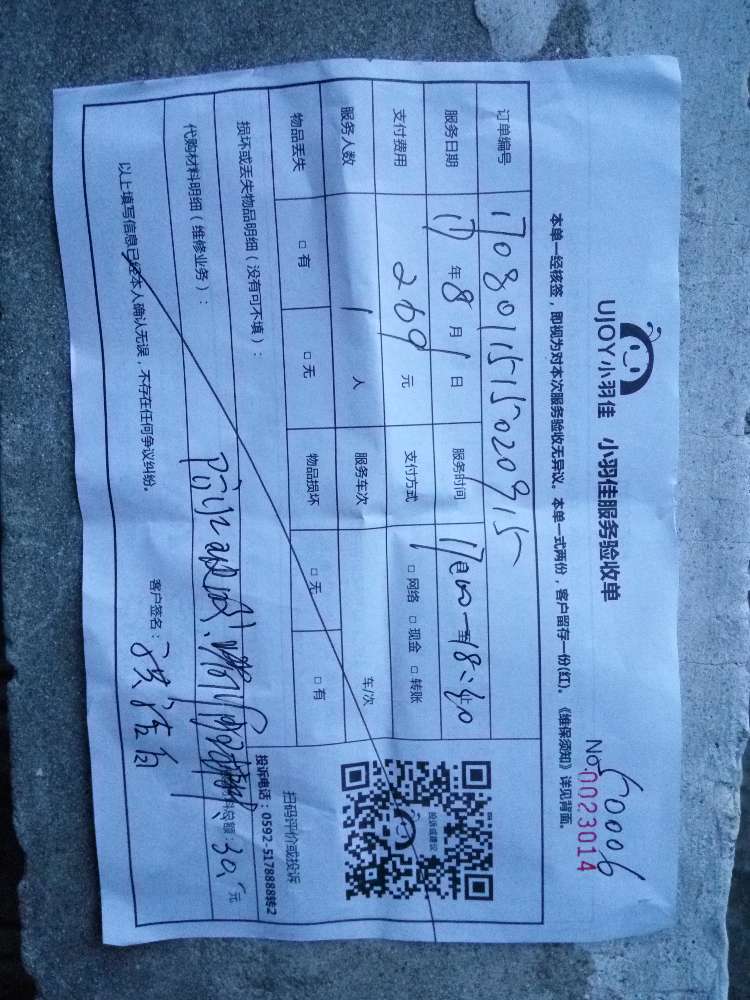 UJOY小羽佳 小羽佳服务验收单
60006
No.0023014
本单一经核签，即视为对本次服务验收无异议。本单一式两份，客户留存一份(红)。《维保须知》详见背面。
订单编号 1708011515020915
服务日期 17 年 8 月 1 日 服务时间 17:00 至 18:40
支付费用 269 元 支付方式 □ 网络 □ 现金 □ 转账
服务人数 1 人 服务车次 车/次
物品丢失 □ 有 □ 无 物品损坏 □ 无 □ 有
投诉或建议
扫码评价或投诉
投诉电话：0592-5178888转2
损坏或丢失物品明细（没有可不填）：
代购材料明细（维修业务）：
料总额：30. 元
以上填写信息已经本人确认无误，不存在任何争议纠纷。 客户签名：